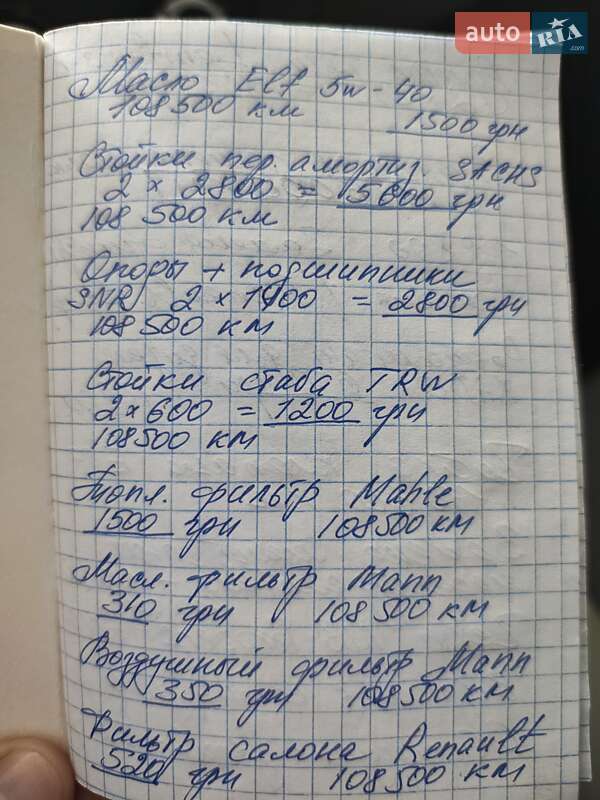 auto RIA.com
Масло Elf 5w-40
108500 км 1500 грн
Стойки пер. амортиз. SACHS
2 × 2800 = 5600 грн
108 500 км
Опоры + подшипники
SNR 2 × 1400 = 2800 грн
108 500 км
Стойки стаба TRW
2 × 600 = 1200 грн
108500 км
Топл. фильтр Mahle
1500 грн 108500 км
Масл. фильтр Mann
310 грн 108500 км
Воздушный фильтр Mann
350 грн 108500 км
Фильтр салона Renault
520 грн 108500 км